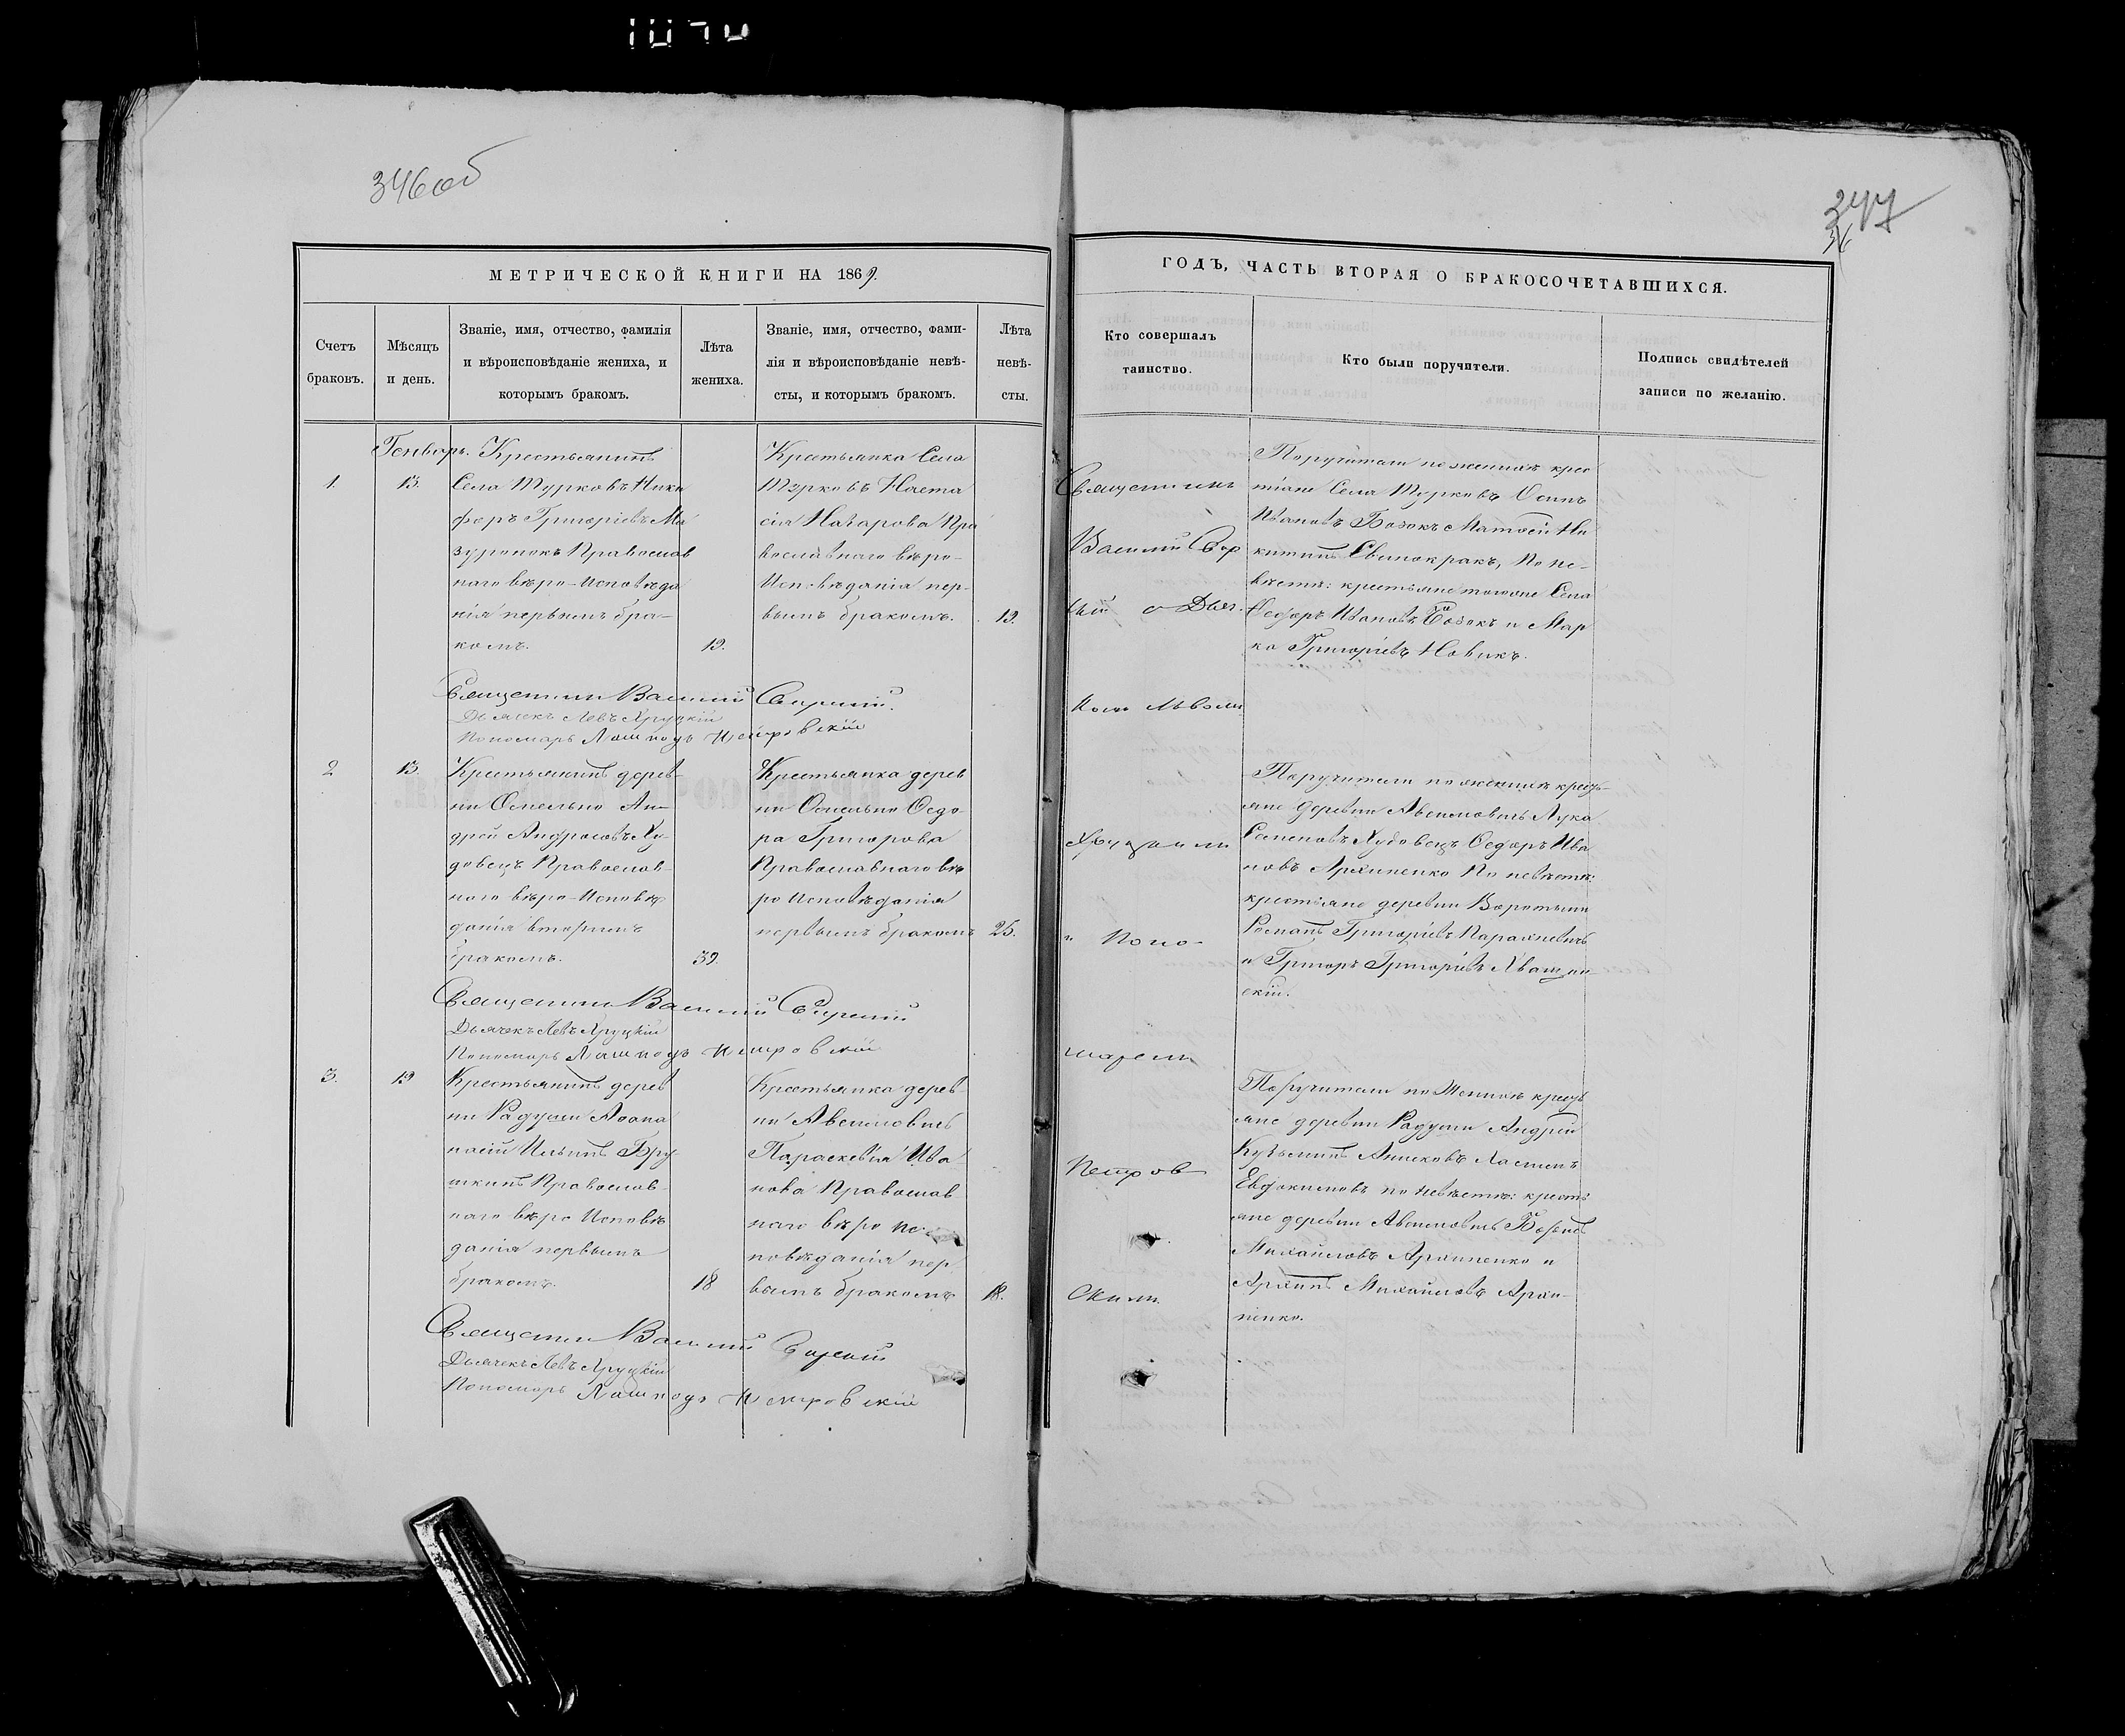 346об
347
МЕТРИЧЕСКОЙ КНИГИ НА 1869.
ГОДЪ, ЧАСТЬ ВТОРАЯ О БРАКОСОЧЕТАВШИХСЯ.
Счетъ
браковъ.
Мѣсяцъ
и день.
Званіе, имя, отчество, фамилія
и вѣроисповѣданіе жениха, и
которымъ бракомъ.
Лѣта
жениха.
Званіе, имя, отчество, фами-
лія и вѣроисповѣданіе невѣ-
сты, и которымъ бракомъ.
Лѣта
невѣ-
сты.
Кто совершалъ
таинство.
Кто были поручители.
Подпись свидѣтелей
записи по желанію.
1.
Генварь.
13.
Крестьянинъ
Села Турковъ Ники
форъ Григоріевъ Ма
зуронокъ Православ
наго вѣро-Исповѣда
нія первымъ бра-
комъ.
19.
Крестьянка Села
Турковъ Наста
сія Назарова Пра
вославнаго вѣро-
Исповѣданія пер-
вымъ бракомъ.
19.
Поручители по женихѣ крес
тіане Села Турковъ Осипъ
Ивановъ Бозокъ Матвѣй Ни
китинъ Свинокракъ, По не-
вѣстѣ: крестьяне тогоже Села
Ѳедоръ Ивановъ Бозокъ и Мар
ко Григоріевъ Новикъ.
Василій
Дьячекъ Левъ Хруцкій
Пономарь
2
13.
Крестьянинъ дерев-
ни Осмельно Ан-
дрей Андреевъ Ху-
довецъ Православ-
наго вѣро-Исповѣ
данія вторымъ
бракомъ.
39.
Крестьянка дерев
ни Осмельно Ѳедо-
ра Григорова
Православнаго вѣ
ро Исповѣданія
первымъ бракомъ
25.
Поручители по женихѣ кресть-
яне деревни Авсимовичъ Лука
Семеновъ Худовецъ Ѳедоръ Ива
новъ Архипенко По невѣстѣ:
крестьяне деревни Воротыни
Романъ Григоріевъ
и Григоръ Григоріевъ
скій.
Василій
Дьячекъ Левъ Хруцкій
Пономарь
3.
19
Крестьянинъ дерев
ни Радуши Аѳана
насій Ильинъ Бру
шкинъ Православ-
наго вѣро Исповѣ
данія первымъ
бракомъ.
18
Крестьянка дерев-
ни Авсимовичъ
Параскевія Ива
нова Православ
наго вѣро Ис
повѣданія пер
вымъ бракомъ
18.
Поручители по Женихѣ кресть
яне деревни Радуши Андрей
Кузьминъ
Евдокимовъ по невѣстѣ: кресть
яне деревни Авсимовичъ
Михайловъ Архипенко и
Архипъ Михайловъ Архи-
пенко.
Василій
Дьячекъ Левъ Хруцкій
Пономарь
Священникъ
Василій
Львомъ
Хруцкимъ
и Поно-
маремъ
Петров
скимъ